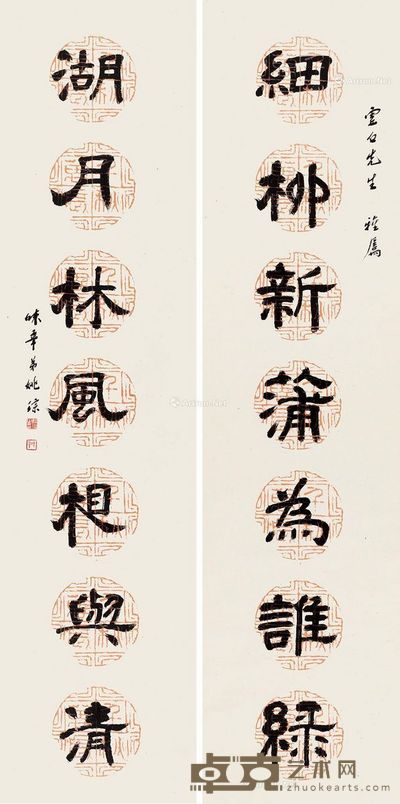 雲白先生 雅屬
細柳新蒲為誰綠
湖月林風相與清
味辛弟姚琮
Artron.Net
Artron.Net
卓克艺术网
zhuokearts.com